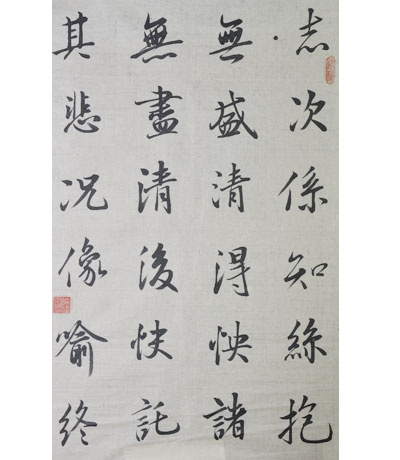 志次係知絲抱
無盛清得怏諸
無盡清後快託
其悲况像喻終